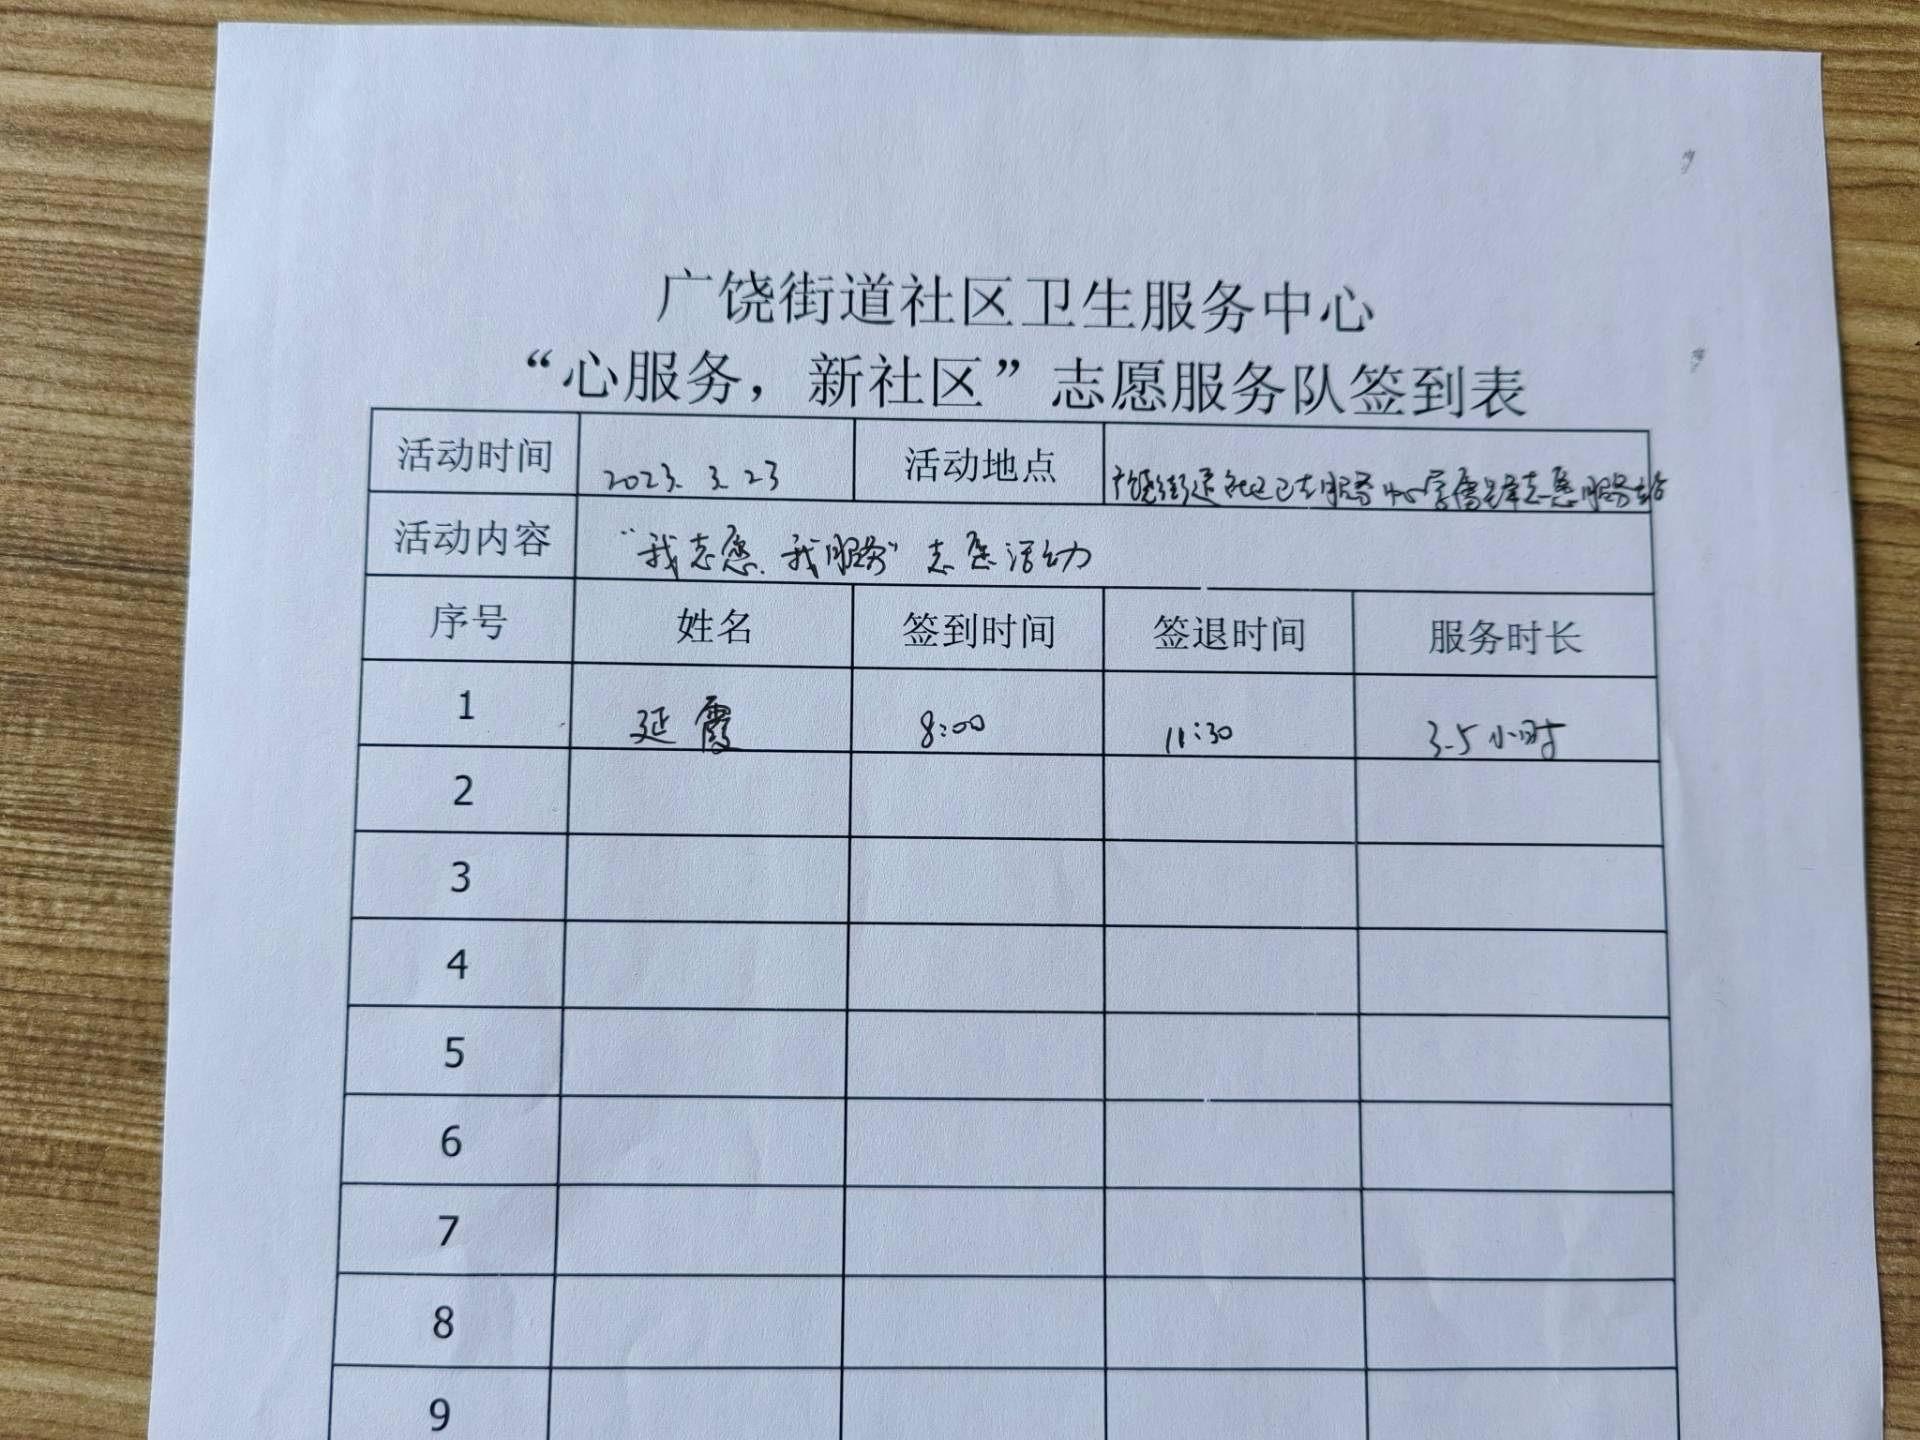 广饶街道社区卫生服务中心
“心服务，新社区”志愿服务队签到表
活动时间 2023.3.23 活动地点 广饶街道社区卫生服务中心学雷锋志愿服务站
活动内容 “我志愿、我服务”志愿活动
序号 姓名 签到时间 签退时间 服务时长
1 延霞 8:00 11:30 3.5小时
2
3
4
5
6
7
8
9